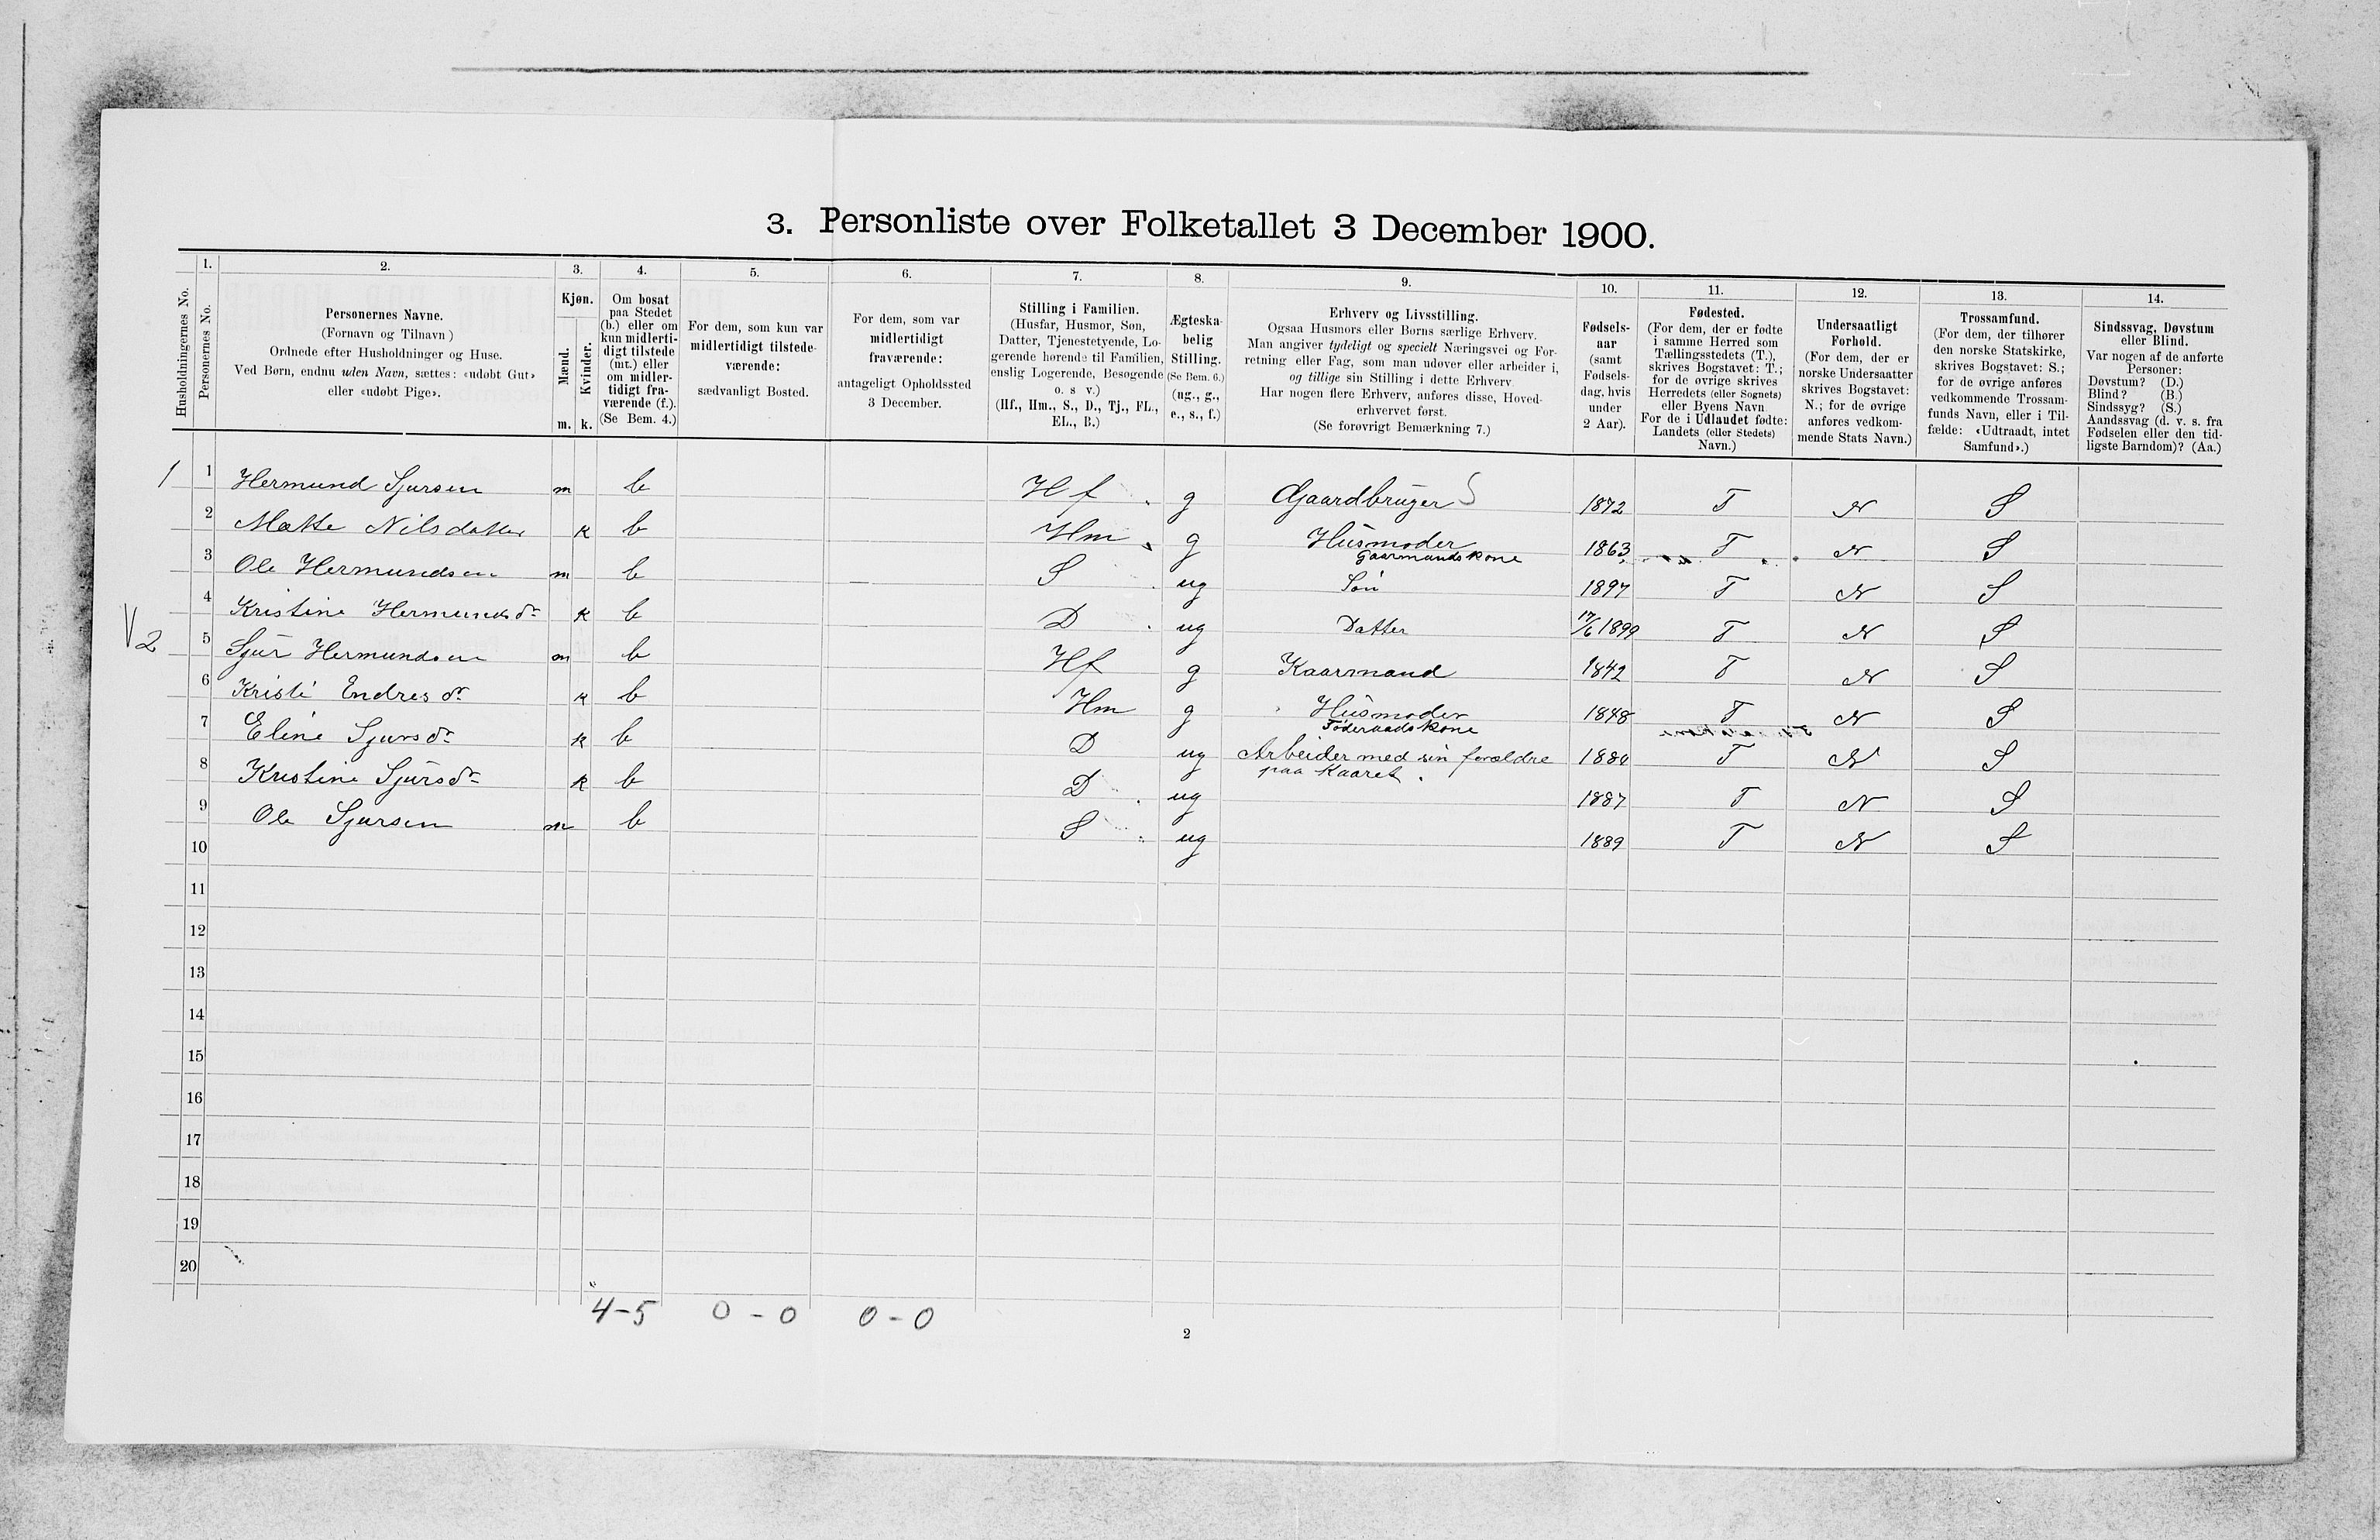 3. Personliste over Folketallet 3 December 1900.
Husholdningernes No.
1.
Personernes No.
2.
Personernes Navne.
(Fornavn og Tilnavn)
Ordnede efter Husholdninger og Huse.
Ved Børn, endnu uden Navn, sættes: «udøbt Gut»
eller «udøbt Pige».
3.
Kjøn.
Mænd.
Kvinder.
m. k.
4.
Om bosat
paa Stedet
(b.) eller om
kun midlerti-
digt tilstede
(mt.) eller
om midler-
tidigt fra-
værende (f.).
(Se Bem. 4.)
5.
For dem, som kun var
midlertidigt tilstede-
værende:
sædvanligt Bosted.
6.
For dem, som var
midlertidigt
fraværende:
antageligt Opholdssted
3 December.
7.
Stilling i Familien.
(Husfar, Husmor, Søn,
Datter, Tjenestetyende, Lo-
gerende hørende til Familien,
enslig Logerende, Besøgende
o. s v.)
(Hf., Hm., S., D., Tj., FL.,
EL., B.)
8.
Ægteska-
belig
Stilling.
(Se Bem. 6.)
(ug., g.,
e., s., f.)
9.
Erhverv og Livsstilling.
Ogsaa Husmors eller Børns særlige Erhverv.
Man angiver tydeligt og specielt Næringsvei og For-
retning eller Fag, som man udøver eller arbeider i,
og tillige sin Stilling i dette Erhverv.
Har nogen flere Erhverv, anføres disse, Hoved-
erhvervet først.
(Se forøvrigt Bemærkning 7.)
10.
Fødsels-
aar
(samt
Fødsels-
dag, hvis
under
2 Aar).
11.
Fødested.
(For dem, der er fødte
i samme Herred som
Tællingsstedets (T.),
skrives Bogstavet: T.;
for de øvrige skrives
Herredets (eller Sognets)
eller Byens Navn
For de i Udlandet fødte:
Landets (eller Stedets)
Navn.)
12.
Undersaatligt
Forhold.
(For dem, der er
norske Undersaatter
skrives Bogstavet:
N.; for de øvrige
anføres vedkom-
mende Stats Navn.)
13.
Trossamfund.
(For dem, der tilhører
den norske Statskirke,
skrives Bogstavet: S.;
for de øvrige anføres
vedkommende Trossam-
funds Navn, eller i Til-
fælde: «Udtraadt, intet
Samfund».)
14.
Sindssvag, Døvstum
eller Blind.
Var nogen af de anførte
Personer:
Døvstum? (D.)
Blind? (B.)
Sindssyg? (S.)
Aandssvag (d. v. s. fra
Fødselen eller den tid-
ligste Barndom)? (Aa.)
1 1 Hermund Sjursen m b Hf g Gaardbruger S 1872 T N S
2 Matte Nilsdatter k b Hm g Husmoder 1863 T N S
Gaarmandskone
3 Ole Hermundsen m b S ug Søn 1897 T N S
4 Kristine Hermundsdr k b D ug Datter 17/6 1899 T N S
V 2 5 Sjur Hermundsen m b Hf g Kaarmand 1842 T N S
6 Kristi Endresdr k b Hm g Husmoder 1848 T N S
Føderaadskone
7 Eline Sjursdr k b D ug Arbeider med sin forældre 1880 T N S
paa Kaaret.
8 Kristine Sjursdr k b D ug 1887 T N S
9 Ole Sjursen m b S ug 1889 T N S
10
11
12
13
14
15
16
17
18
19
20
4-5 0-0 0-0
2